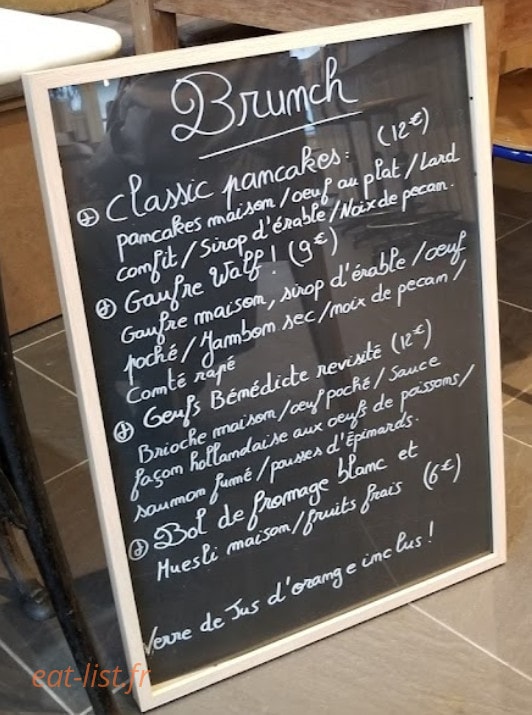 Brunch
Classic pancakes: (12€)
pancakes maison / oeuf au plat / Lard
confit / Sirop d'érable / Noix de pecan.
Gaufre Walf! (9€)
Gaufre maison, sirop d'érable / oeuf
poché / Jambom sec / noix de pecan /
Comté rapé
Oeufs Bénédicte revisité (12€)
Brioche maison / oeuf poché / Sauce
façon hollandaise aux oeufs de poissons /
saumon fumé / pousses d'épinards.
Bol de fromage blanc et
Muesli maison / fruits frais (6€)
Verre de Jus d'orange inclus!
eat-list.fr